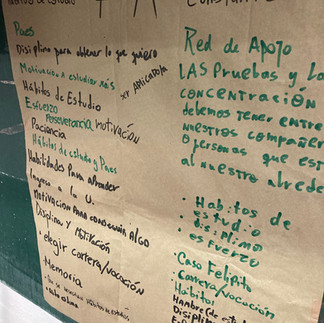 Paes
Disiplina para obtener lo que quiero
Motivación a estudiar más
Hábitos de Estudio
Esfuerzo
Perseverancia, motivación
Paciencia
Hábitos de estudio y Paes
Habilidades para aprender
Ingreso a la U.
Motivacion para conseguir ALGO
Disiplina y Motivación
• elegir carrera/vocación
Memoria
Red de Apoyo
LAS Pruebas y La
CONCENTRACIÓN
debemos tener entre
nuestros compañer
o personas que est
al nuestro alrede
• Habitos de
estudio
• disiplina
• esfuerzo
• Caso Felipito
• Carrera/vocacion
• Habitos
Hambre (de est
Disiplin